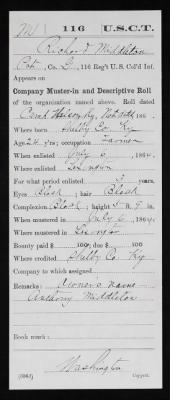 M | 116 | U.S.C.T.
Richard Middleton
Pvt, Co. D, 116 Reg't U.S. Col'd Inf.
Appears on
Company Muster-in and Descriptive Roll
of the organization named above. Roll dated
Camp Nelson, Ky, Oct 186 .
Where born Shelby Co Ky
Age 24 y'rs; occupation Farmer
When enlisted July 6, 1864.
Where enlisted Lexington
For what period enlisted 3 years.
Eyes Black; hair Black
Complexion Black; height 5 ft. 9 in.
When mustered in July 6, 1864.
Where mustered in Lexington
Bounty paid $ 100; due $ 100
Where credited Shelby Co Ky
Company to which assigned
Remarks: Owner's name
Anthony Middleton
Book mark:
Washington
Copyist.